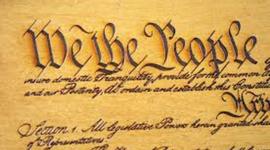 We the People
insure domestic Tranquility, provide for the common
and our Posterity, do ordain and establish this Constit
Section 1. All legislative Powers herein granted shall
of Representatives